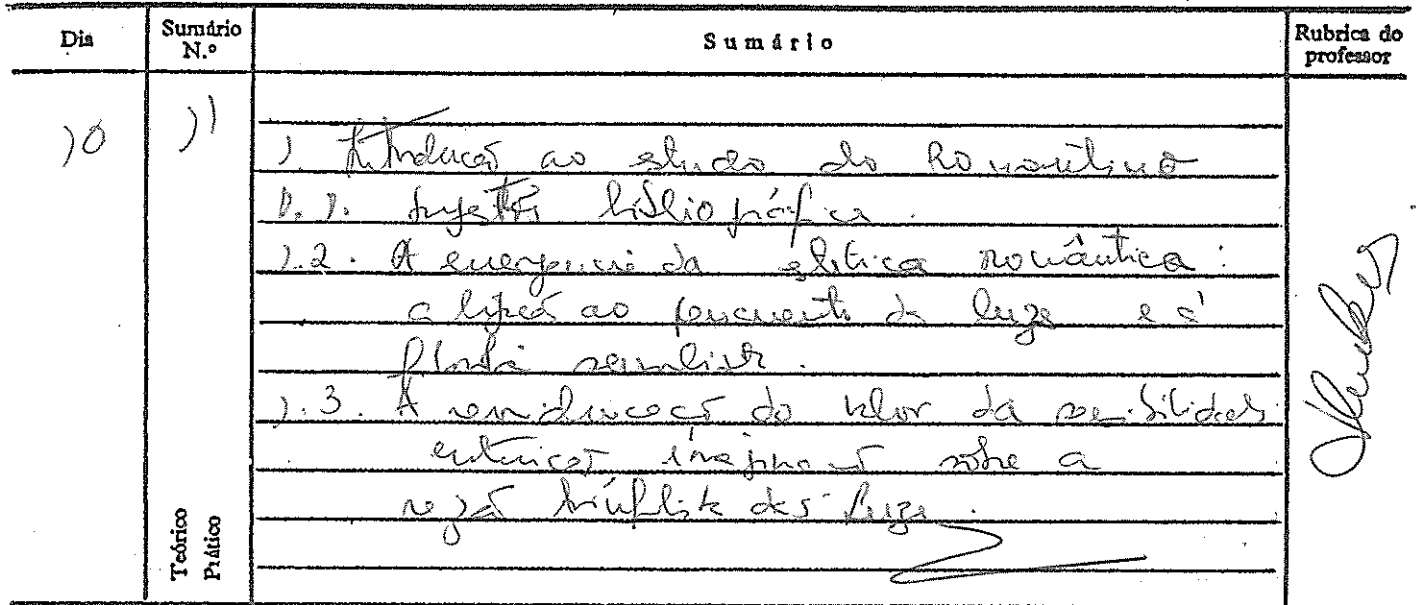 Dia
Sumário N.º
Sumário
Rubrica do professor
10
11
1. Introdução ao estudo do Romantismo
1.1. Sugestões bibliográficas.
1.2. A emergência da estética romântica:
a ligação ao pensamento das luzes e à
filosofia sensualista.
1.3. A reivindicação do valor da sensibilidade
intuição imaginação sobre a
razão triunfalista das Luzes.
Teórico
Prático